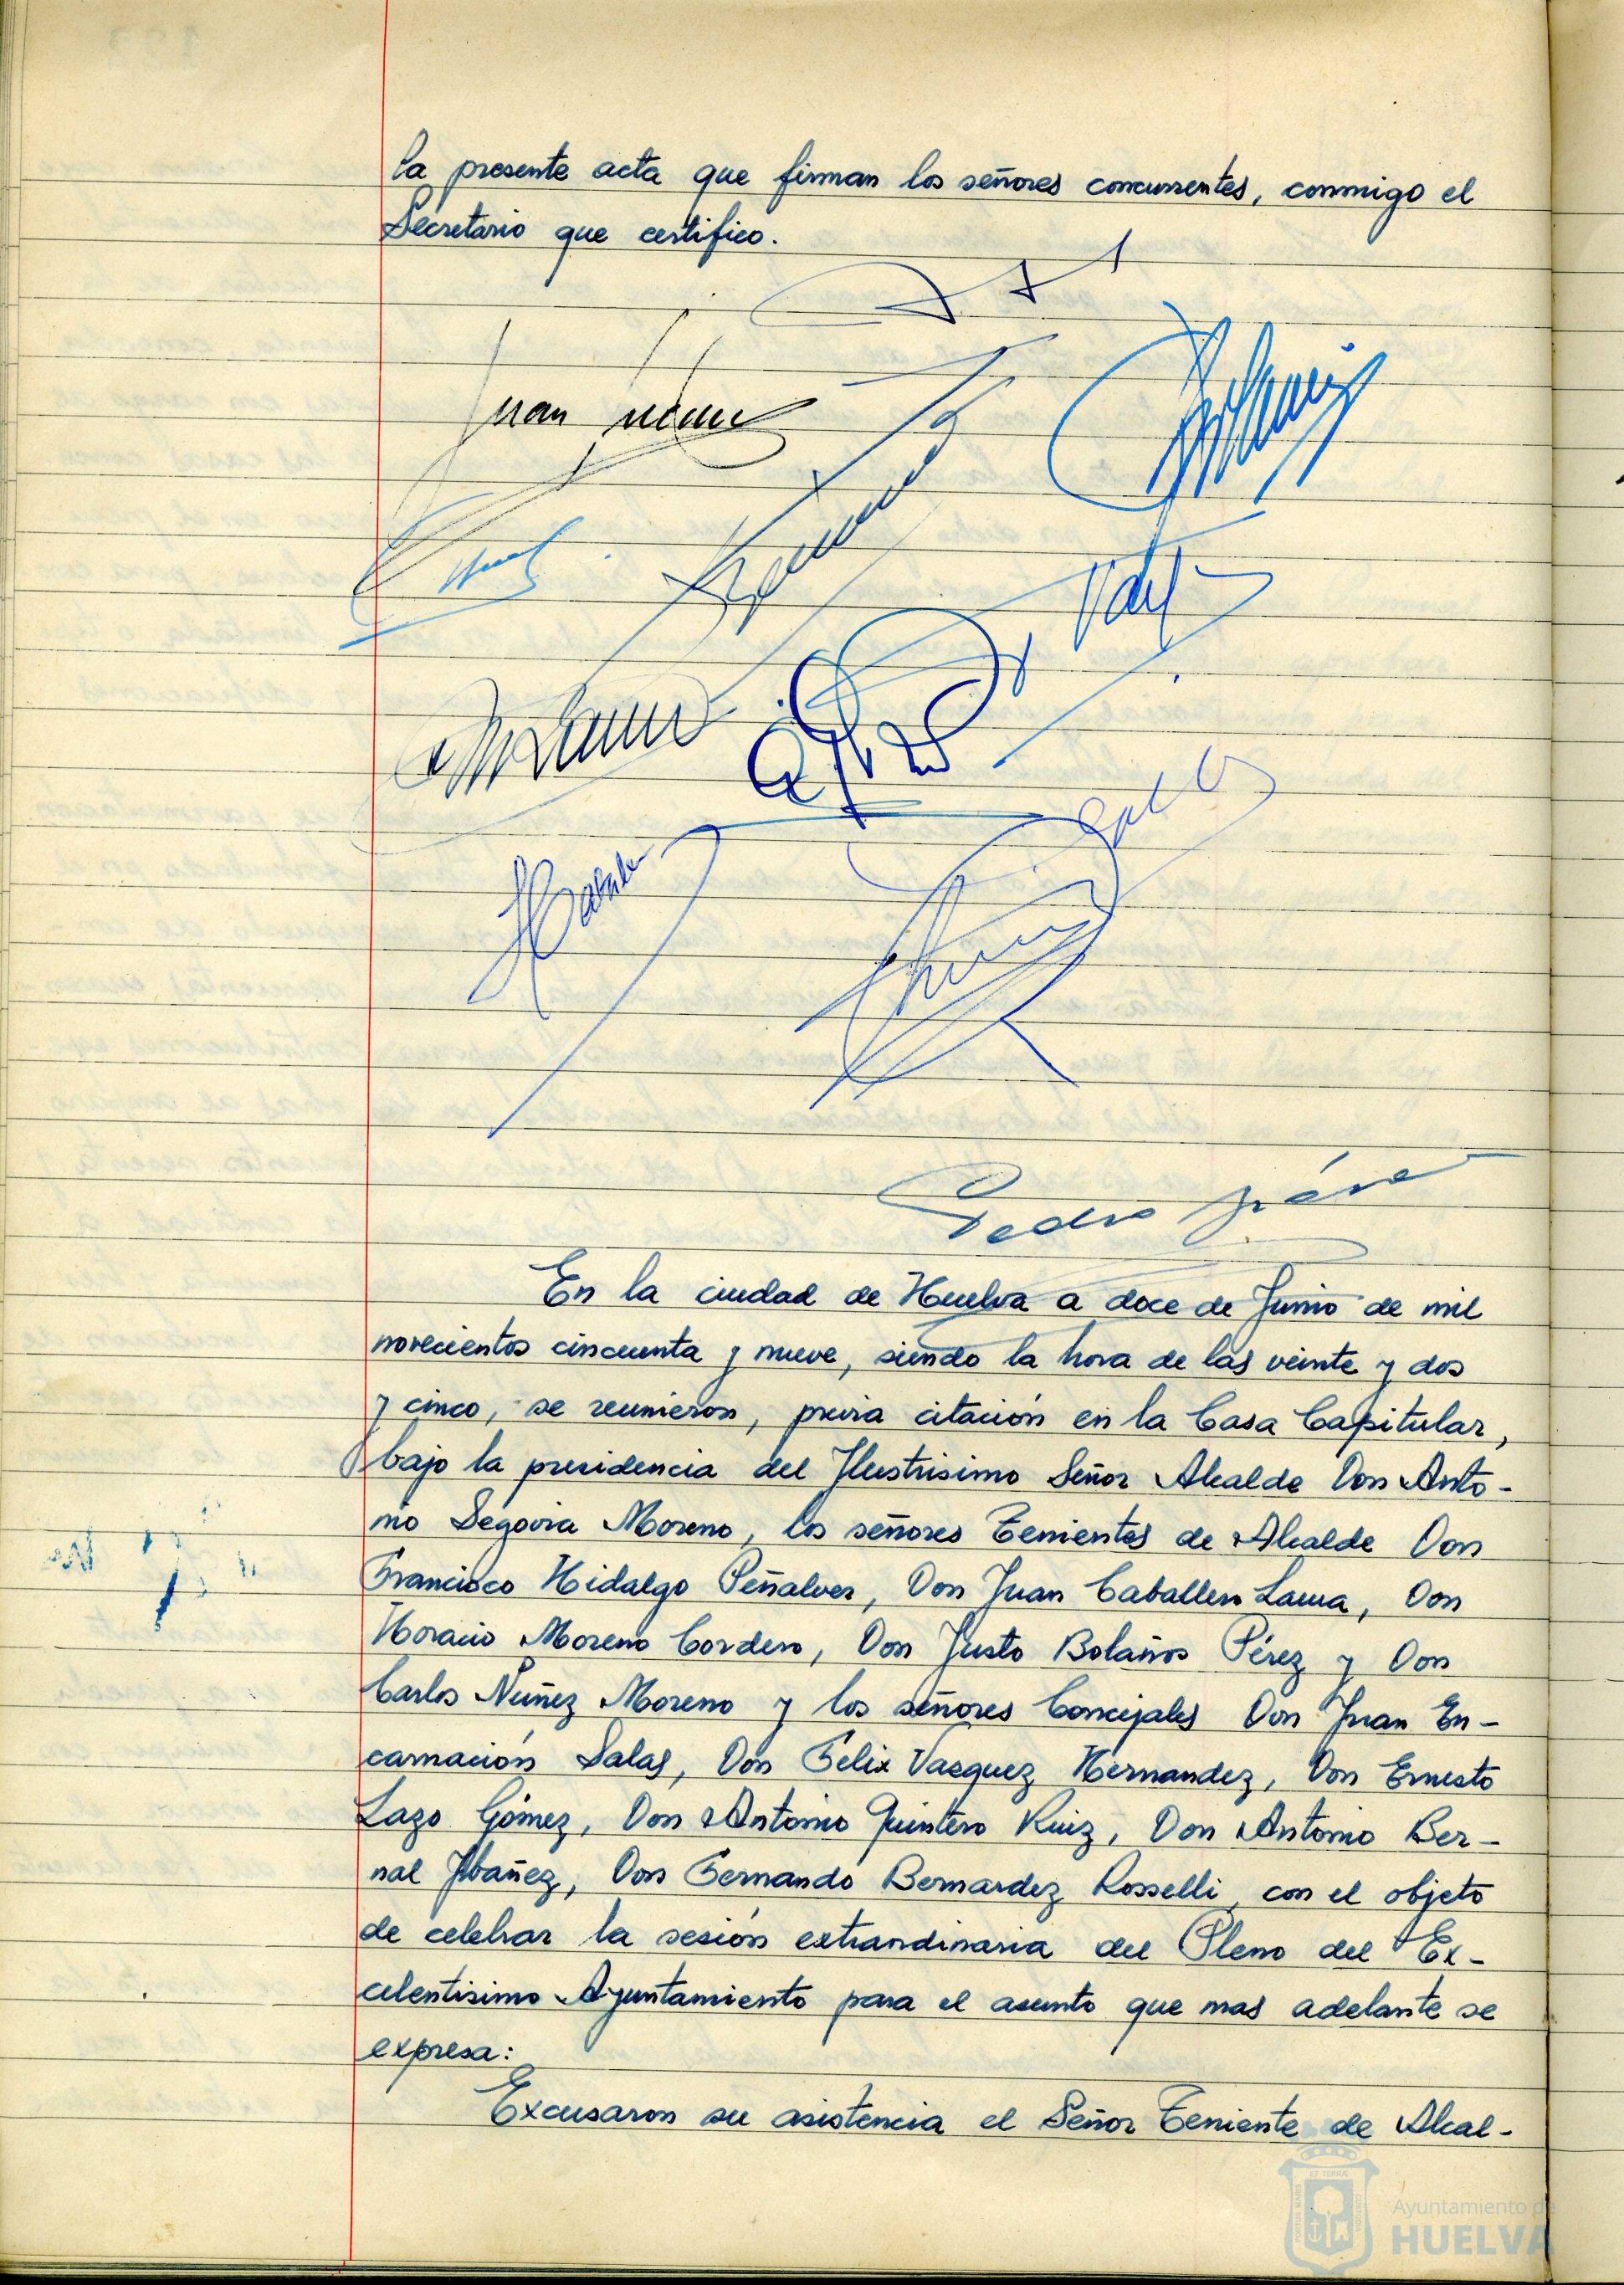 la presente acta que firman los señores concurrentes, conmigo el
Secretario que certifico.
Juan
Pedro
En la ciudad de Huelva a doce de Junio de mil
novecientos cincuenta y nueve, siendo la hora de las veinte y dos
y cinco, se reunieron, previa citación en la Casa Capitular,
bajo la presidencia del Ilustrisimo Señor Alcalde Don Anto-
nio Segovia Moreno, los señores Tenientes de Alcalde Don
Francisco Hidalgo Peñalver, Don Juan Caballero Lama, Don
Horacio Moreno Cordero, Don Justo Bolaños Pérez y Don
Carlos Núñez Moreno y los señores Concejales Don Juan En-
carnación Salas, Don Felix Vazquez Hernandez, Don Ernesto
Lazo Gómez, Don Antonio Quintero Ruiz, Don Antonio Ber-
nal Ybañez, Don Fernando Bernardez Rosselli, con el objeto
de celebrar la sesión extraordinaria del Pleno del Ex-
celentisimo Ayuntamiento para el asunto que mas adelante se
expresa:
Excusaron su asistencia el Señor Teniente de Alcal-
Ayuntamiento de
HUELVA